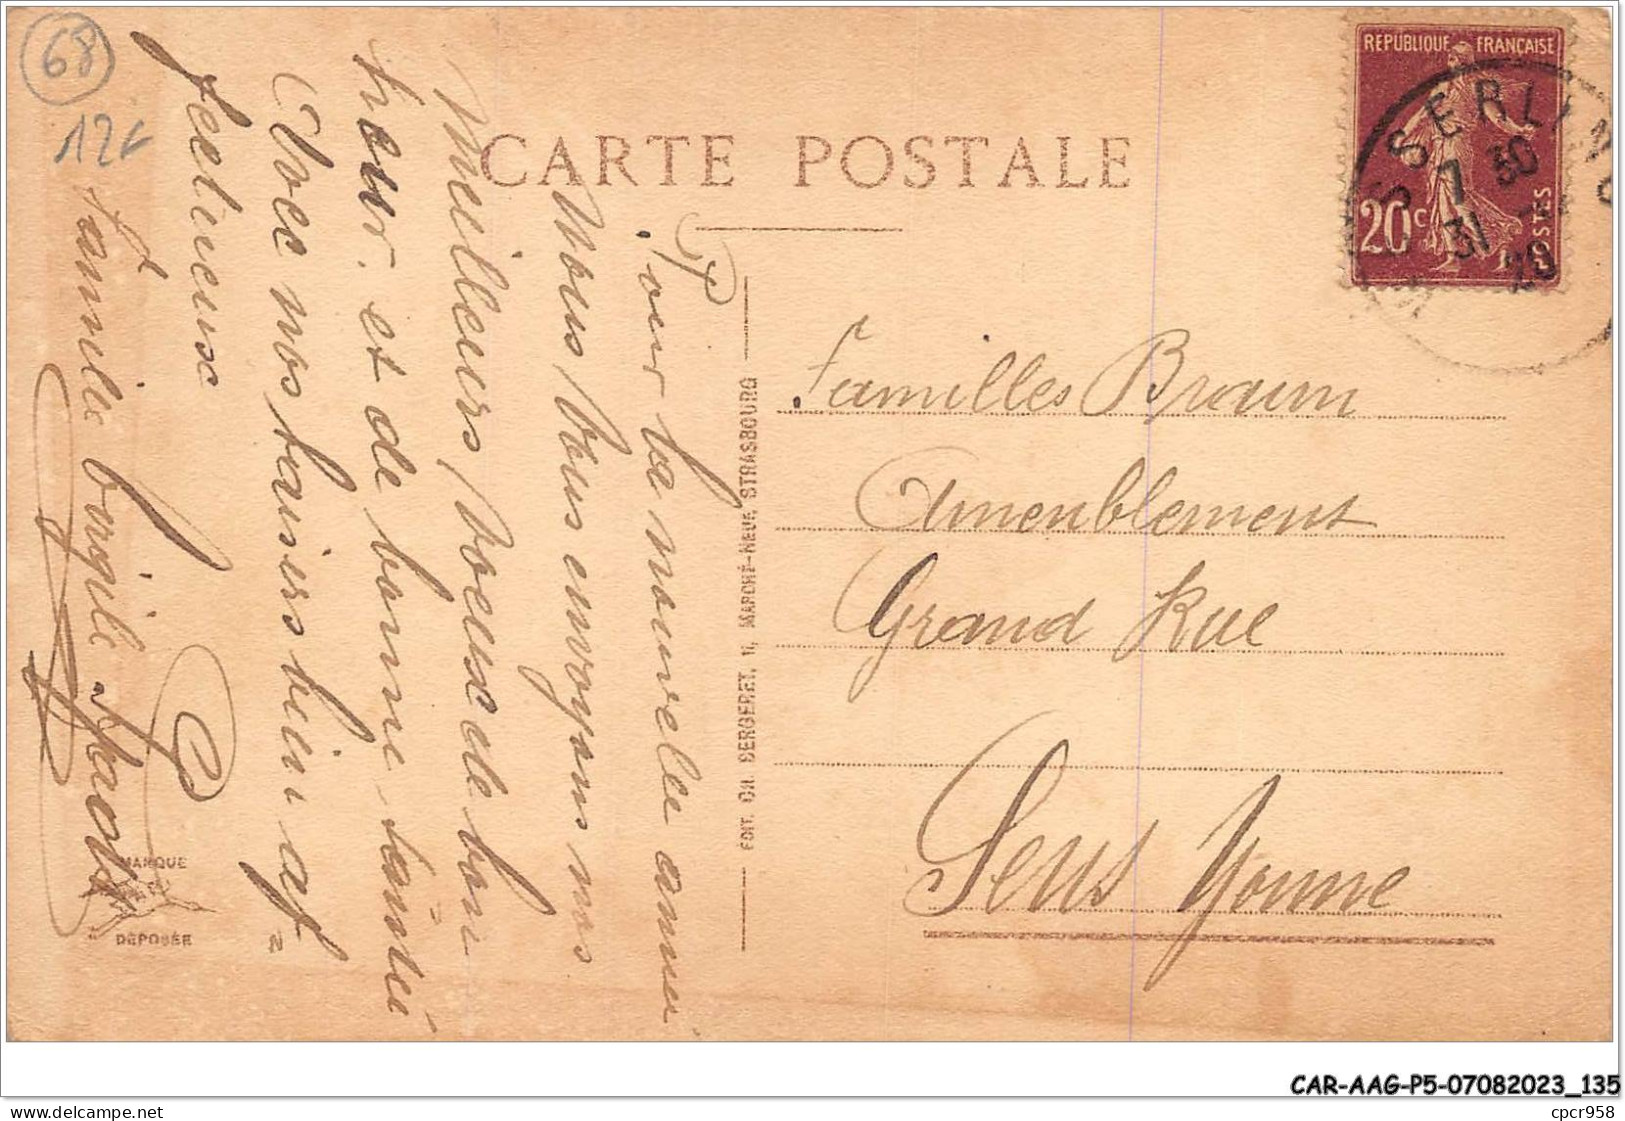 68
12€
REPUBLIQUE FRANÇAISE
20c
POSTES
7 30
31
CARTE POSTALE
Pour la nouvelle anneé
Nous Vous envoyons nos
Meilleurs Voeux de bon
heur. et de bonne Santé
Avec nos baisers bien af
fectueux
Famille
MARQUE
DÉPOSÉE
EDIT. CH. BERGERET, 11, MARCHÉ-NEUF, STRASBOURG
Familles Braun
Ameublement
Grand Rue
Sens Yonne
CAR-AAG-P5-07082023_135
cpcr958